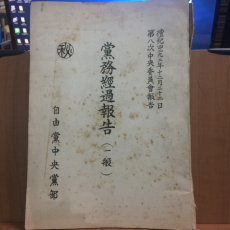 檀紀四二九 年十二月二十 日
第八次中央委員會報告
黨務經過報告(一般)
秘
自由黨中央黨部